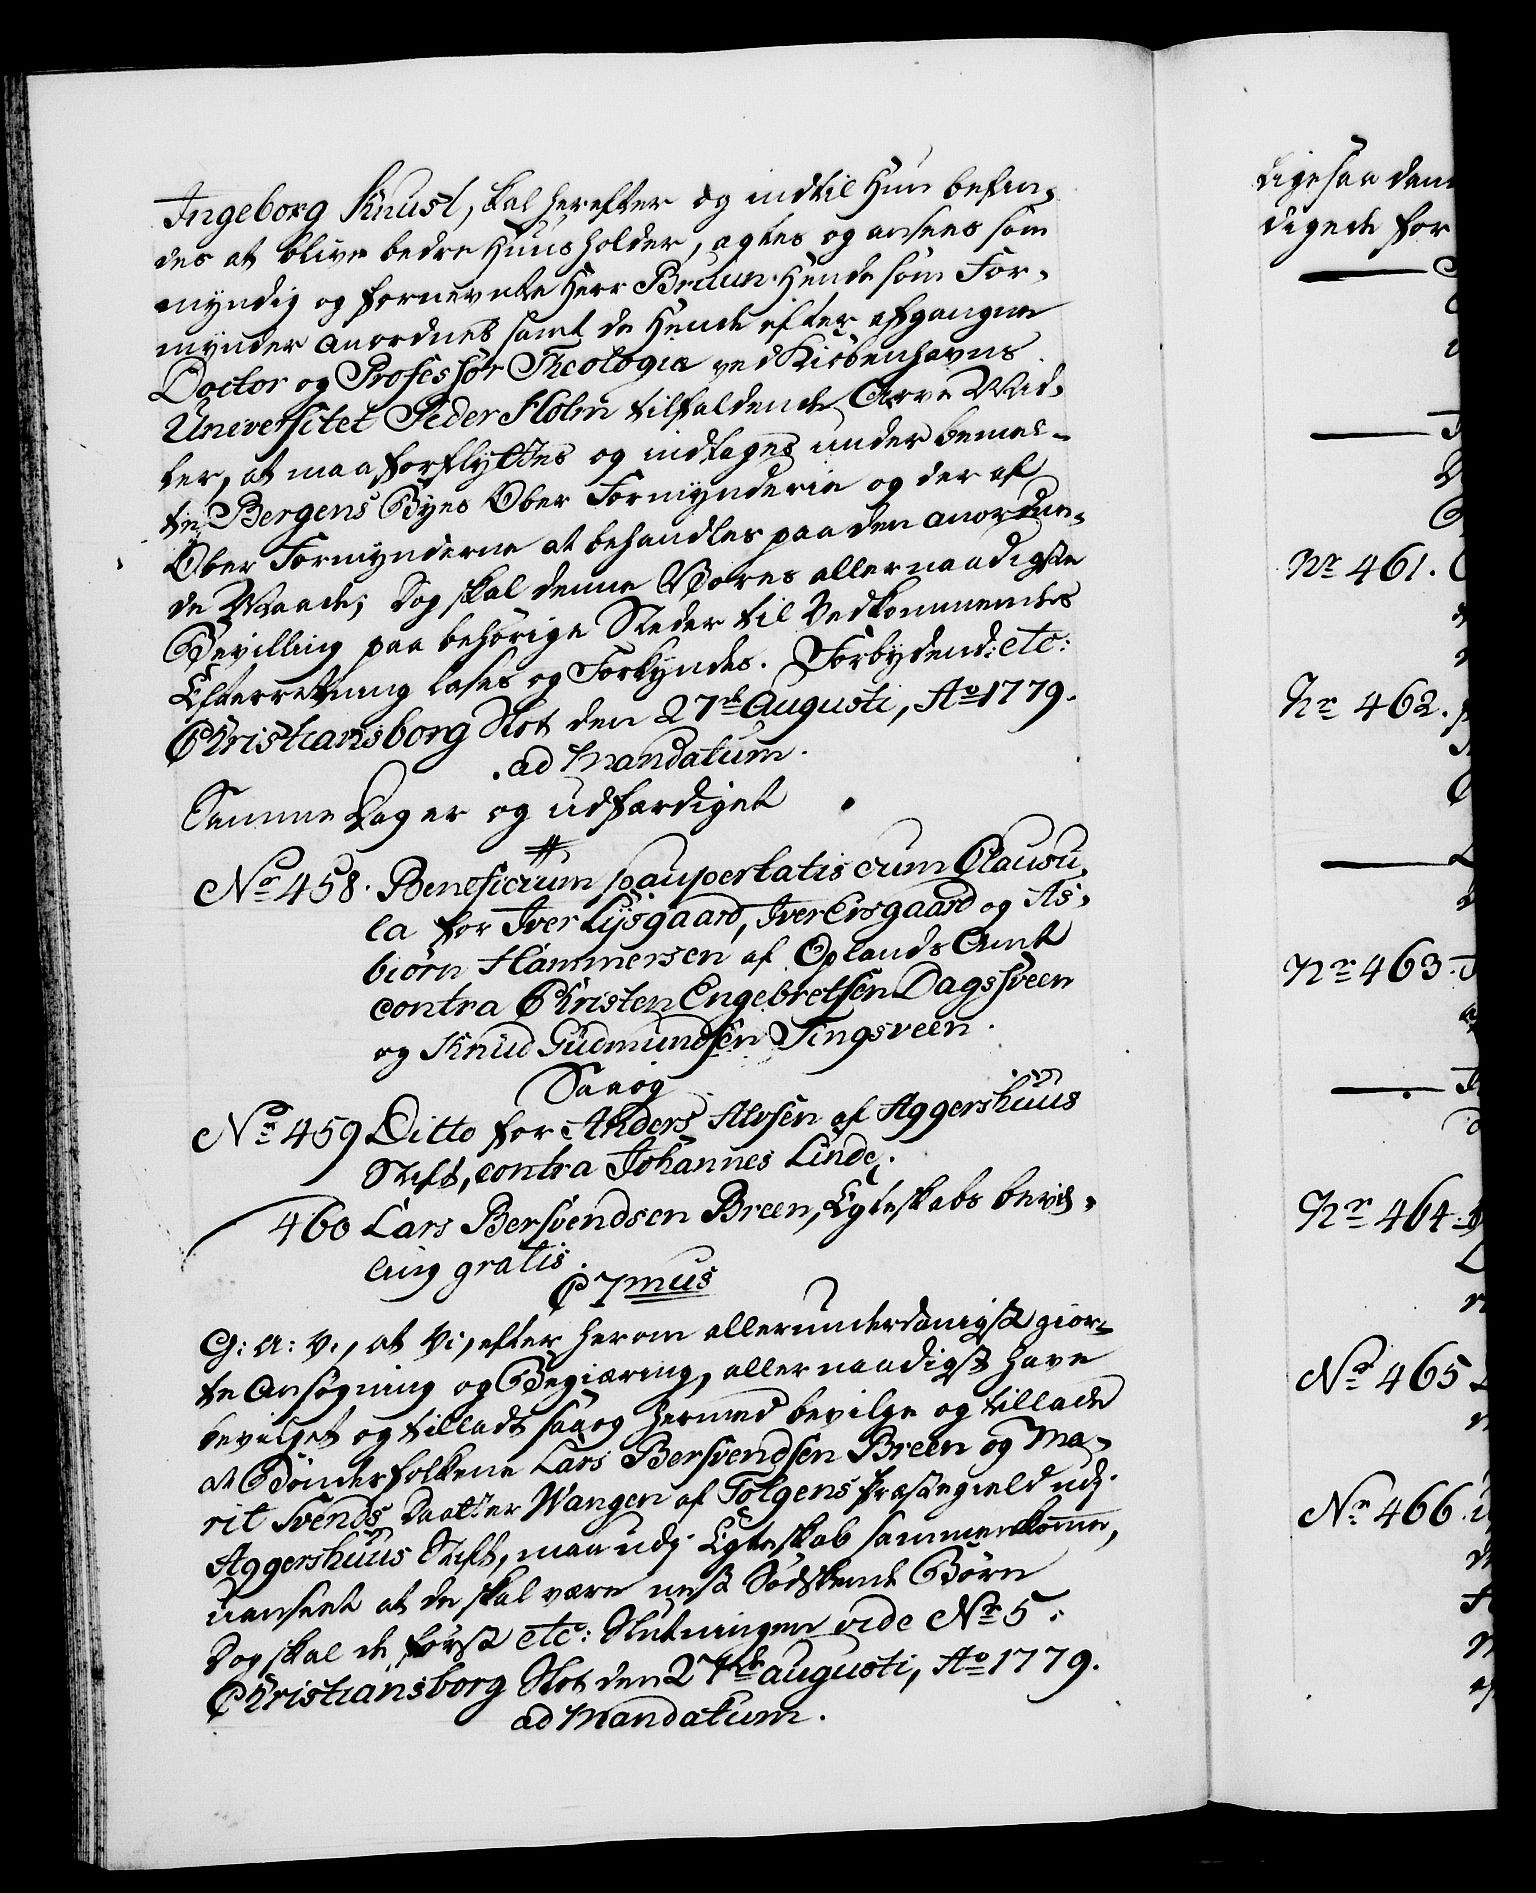 Ingeborg Knust, skal herefter og indtil Hun befin-
des at blive bedre Huusholder, agtes og ansees som
myndig og fornevnte Herr Bruun Hende som For-
mynder anordnes samt de Hende efter afgangne
Doctor og Professor Theologiæ ved Kiøbenhavns
Universitet Peder Holm tilfaldende Arve Mid-
ler, at maa forflyttes og indtages under bemel-
te Bergens Byes Ober Formynderie og der af
Ober Formynderne at behandles paa den anordne-
de Maade; Dog skal denne Vores allernaadigste
Bevilling paa behørige Steder til Vedkommendes
Efterretning læses og Forkyndes. Forbydend: etc:
Christiansborg Slot den 27de Augusti, Ao 1779.
ad Mandatum.
Samme Dag er og udfærdiget
No 458. Beneficium paupertatis cum Clausu-
la for Iver Lysgaard, Iver Eisgaard og As-
biørn Hammersen af Oplands Amt
contra Christen Engebretsen Dagssveen
og Knud Gudmundsen Tingsveen.
Saaog
No 459 Ditto for Anders Alvsen af Aggershuus
Stift, contra Johannes Linde.
460 Lars Bersvendsen Breen, Egteskabs bevil-
ling gratis.
C 7mus
G: A: V:, at Vi, efter herom allerunderdanigst giør-
te Ansøgning og Begiæring, allernaadigst have
bevilget og tilladt saaog hermed bevilge og tillade
at Bønderfolkene Lars Bersvendsen Breen og Ma-
rit Svends Daatter Wangen af Tolgens Præstegield udj
Aggershuus Stift, maa udj Egteskab sammenkomme,
uanseet at de skal være nest Sødskende Børn
Dog skal de først etc: Slutningen vide No 5.
Christiansborg Slot den 27de augusti, Ao 1779.
ad Mandatum.
ligesaa dan
digede for
No 461.
No 462.
No 463.
No 464.
No 465
No 466